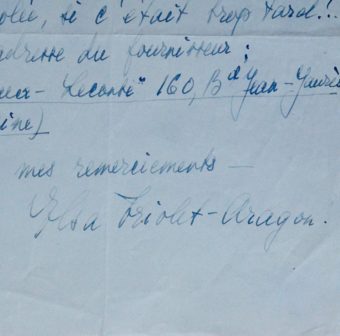 olée, si c'était trop tard!..
adresse du fournisseur :
Leconte" 160, Bd Jean-Jaurès
ine)
mes remerciements —
Elsa Triolet-Aragon.